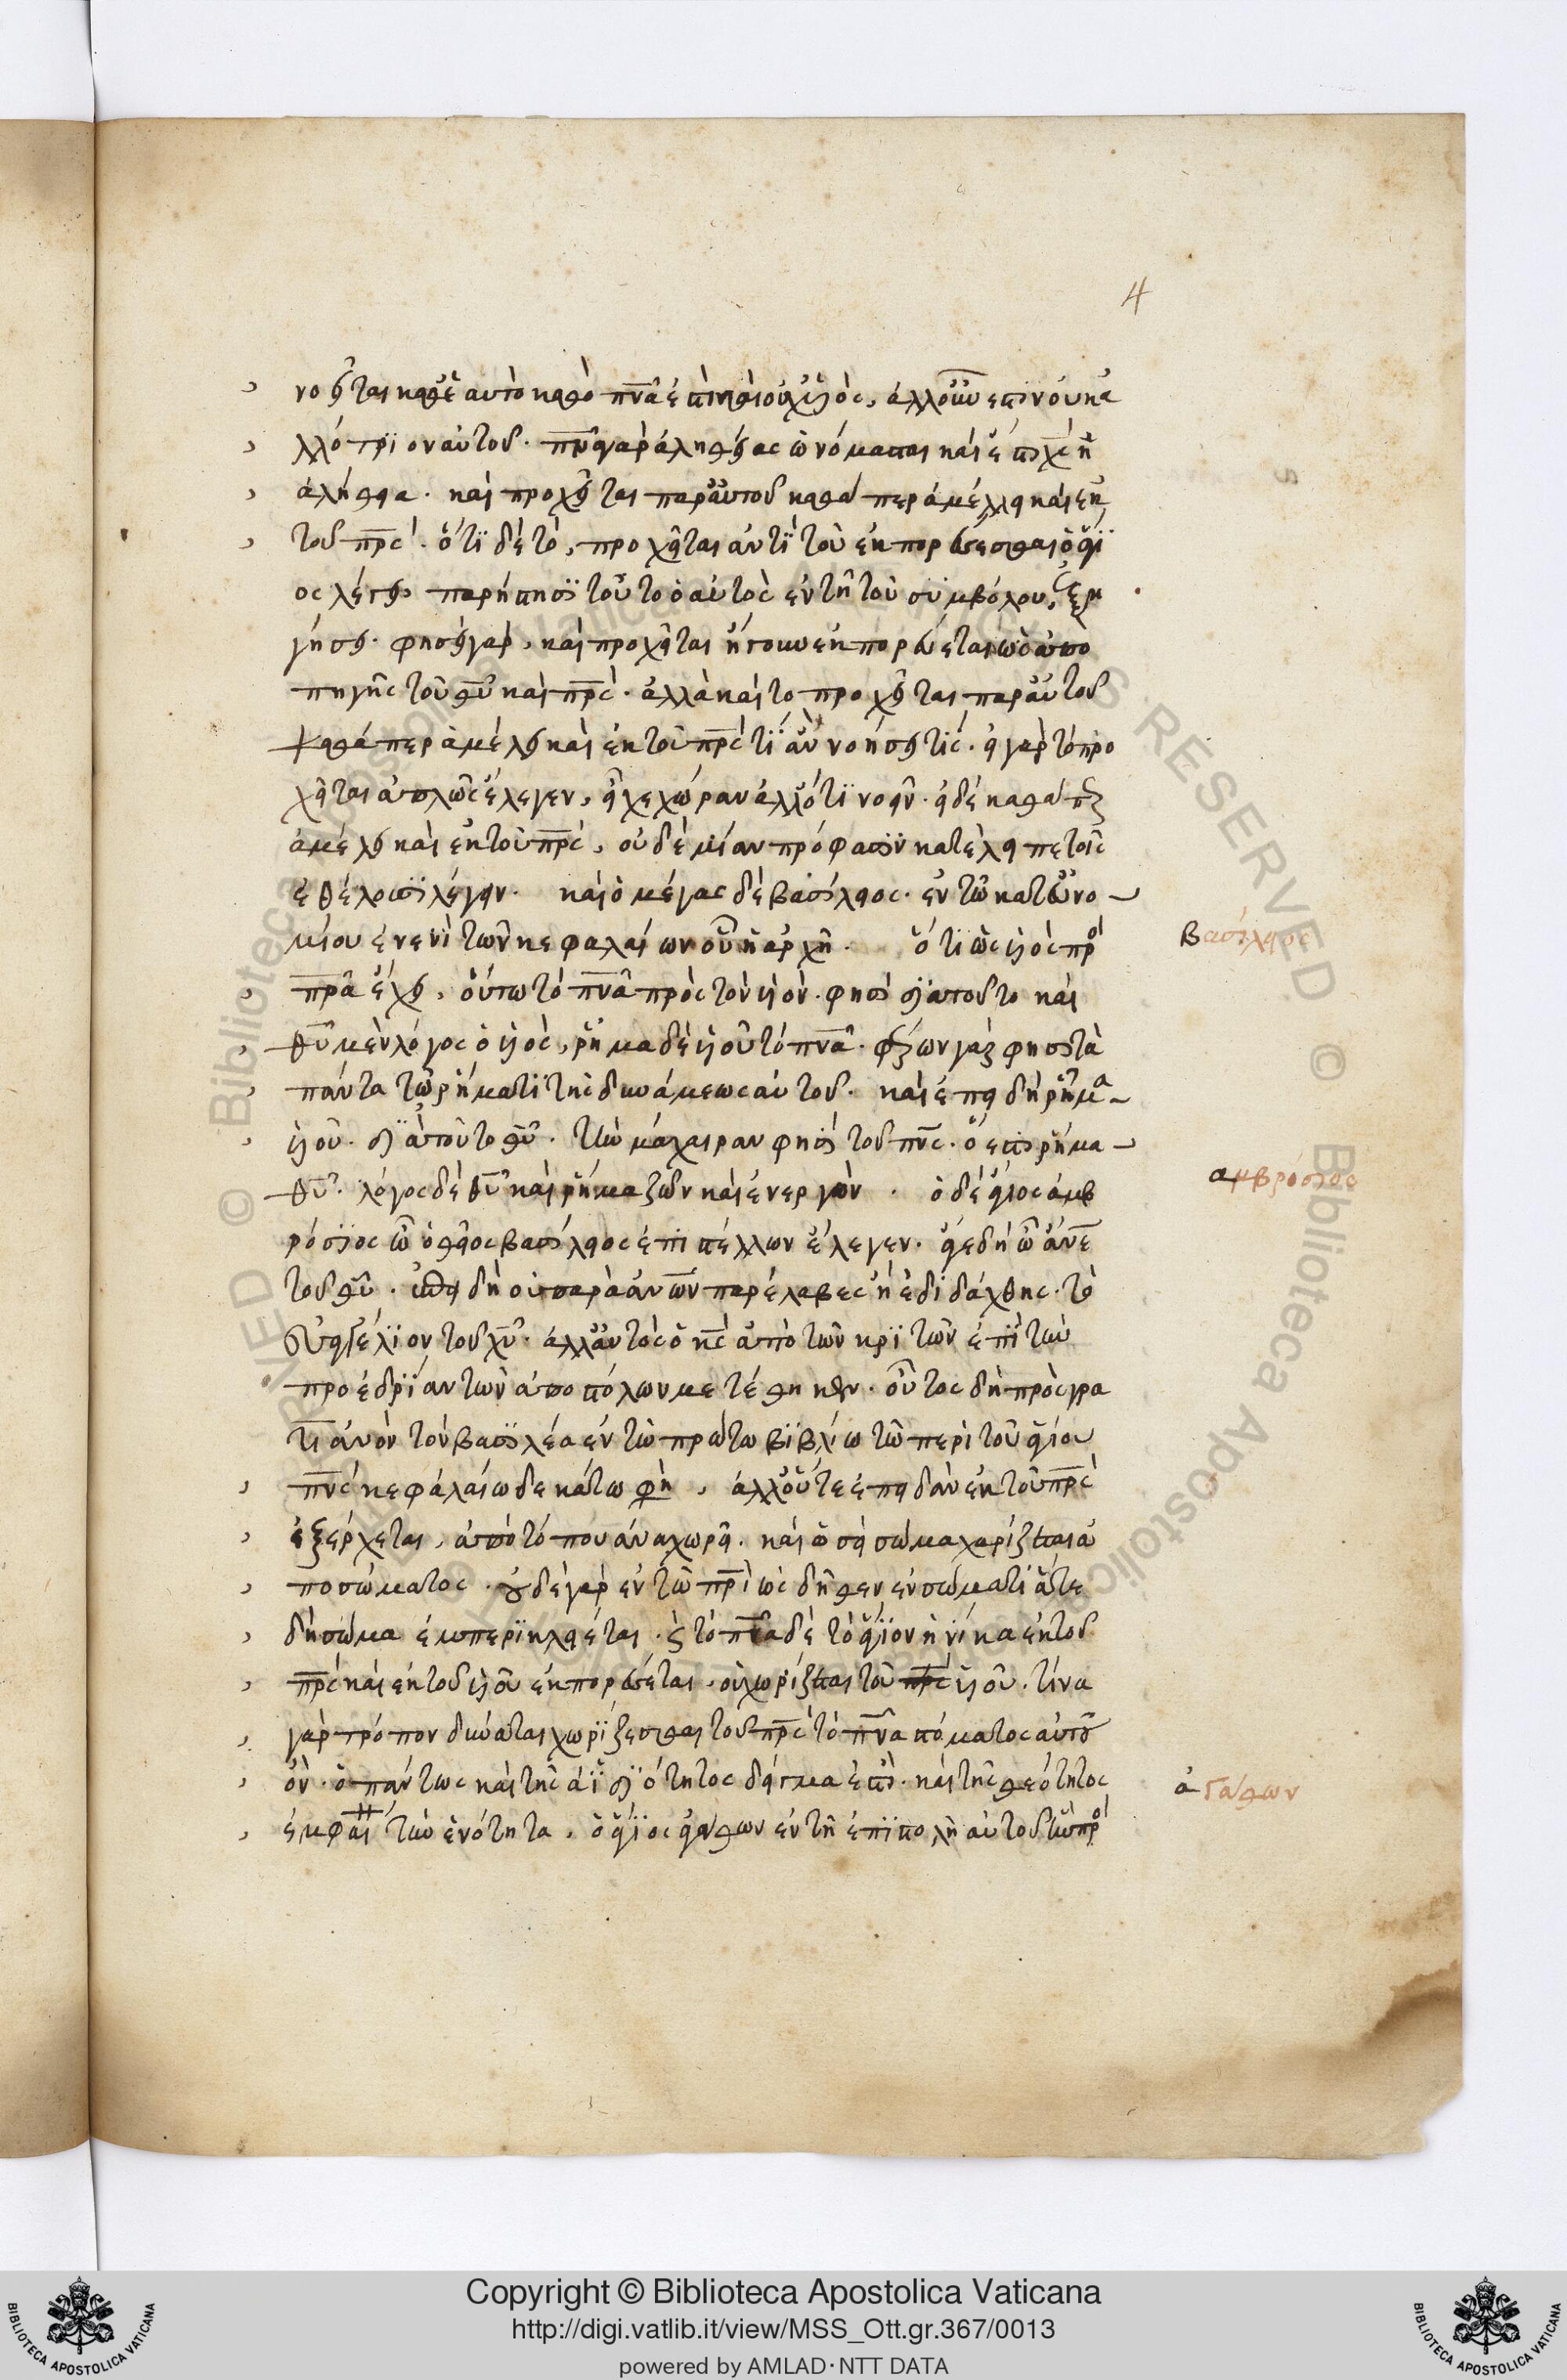 4
νοεῖται καθ' ἑαυτὸ καθὸ πνᾶ ἐστι καὶ οὐχ υἱὸς, ἀλλ' οὖν ἐστιν οὐκ ἀ
λλότριον αὐτοῦ. πνᾶ γὰρ ἀληθείας ὠνόμασται καὶ ἔστι χς ἡ
ἀλήθεια. καὶ προχεῖται παρ' αὐτοῦ καθάπερ ἀμέλει καὶ ἐκ
τοῦ πρς. ὅτι δὲ τὸ, προχεῖται ἀντὶ τοῦ ἐκπορεύεσθαι ὁ ἅγι
ος λέγει, παρήστησι τοῦτο ὁ αὐτὸς ἐν τῇ τοῦ συμβόλου ἐξη
γήσει. φησὶ γὰρ, καὶ προχεῖται ἤγουν ἐκπορεύεται ὡς ἀπὸ
πηγῆς τοῦ θῦ καὶ πρς. ἀλλὰ καὶ τὸ προχεῖται παρ' αὐτοῦ
καθάπερ ἀμέλει καὶ ἐκ τοῦ πρς τί ἂν νοήσει τίς. εἰ γὰρ τὸ προ
χεῖται ἁπλῶς ἔλεγεν, εἶχε χώραν ἄλλό τι νοεῖν. εἰ δὲ καθάπερ
ἀμέλει καὶ ἐκ τοῦ πρς, οὐδὲ μίαν πρόφασιν κατέλειπε τοῖς
ἐθέλουσι λέγειν. καὶ ὁ μέγας δὲ βασίλειος. ἐν τῷ κατ' εὐνο
μίου ἐν ἑνὶ τῶν κεφαλαίων οὗ ἡ ἀρχὴ. ὅτι ὡς υἱὸς πρὸς
πρᾶ ἔχει, οὕτω τὸ πνᾶ πρὸς τὸν υἱὸν. φησὶ διὰ τοῦτο καὶ
θῦ μὲν λόγος ὁ υἱὸς, ῥῆμα δὲ υἱοῦ τὸ πνᾶ. φέρων γὰρ φησι τὰ
πάντα τῷ ῥήματι τῆς δυνάμεως αὐτοῦ. καὶ ἐπειδὴ ῥῆμα
υἱοῦ. διὰ τοῦτο θῦ. τὴν μάχαιραν φησὶ τοῦ πνς. ὅ ἐστι ῥῆμα
θῦ. λόγος δὲ θῦ καὶ ῥῆμα ζῶν καὶ ἐνεργὸν. ὁ δὲ ἅγιος ἀμβ
ρόσιος ὧ ὁ θεῖος βασίλειος ἐπιστέλλων ἔλεγεν.
τοῦ θῦ. ἐπειδὴ οὐ παρὰ ἀνων παρέλαβες ἢ ἐδιδάχθης. τὸ
εὐαγγέλιον τοῦ χῦ. ἀλλ' αὐτὸς ὁ κς ἀπὸ τῶν κριτῶν ἐπὶ τὴν
προεδρίαν τῶν ἀποστόλων μετέθηκεν. οὗτος δὴ πρὸς γρα
τιανὸν τὸν βασιλέα ἐν τῷ πρώτω βιβλίω τῶ περὶ τοῦ ἁγίου
πνς κεφαλαίω δεκάτω φη, ἀλλ' οὔτε ἐπειδὰν ἐκ τοῦ πρς
ἐξέρχεται, ἀπὸ τόπου ἀναχωρεῖ. καὶ ὡσεὶ σώμα χωρίζεται ἀ
πο σώματος. οὐδὲ γὰρ ἐν τῷ πρὶ ὡς δῆθεν ἐν σώματι ἅτε
δὴ σώμα ἐμπερικλείεται. τὸ πνα δὲ τὸ ἅγιον ἡνίκα ἐκ τοῦ
πρς καὶ ἐκ τοῦ υἱοῦ ἐκπορεύεται, οὐ χωρίζεται τοῦ πρς υἱοῦ. τίνα
γὰρ τρόπον δύναται χωρίζεσθαι τοῦ πρς τὸ πνα στόματος αὐτοῦ
ὂν. ὃ πάντως καὶ τῆς ἀϊδιότητος δεῖγμα ἐστι. καὶ τῆς θεότητος
ἐμφαί τὴν ἑνότητα. ὁ ἅγιος ἀγάθων ἐν τῇ ἐπιστολῇ αὐτοῦ τῇ πρὸς
Βασίλειος
αμβρόσιος
ἀγάθων
Copyright © Biblioteca Apostolica Vaticana
http://digi.vatlib.it/view/MSS_Ott.gr.367/0013
powered by AMLAD·NTT DATA
BIBLIOTECA APOSTOLICA VATICANA
BIBLIOTECA APOSTOLICA VATICANA